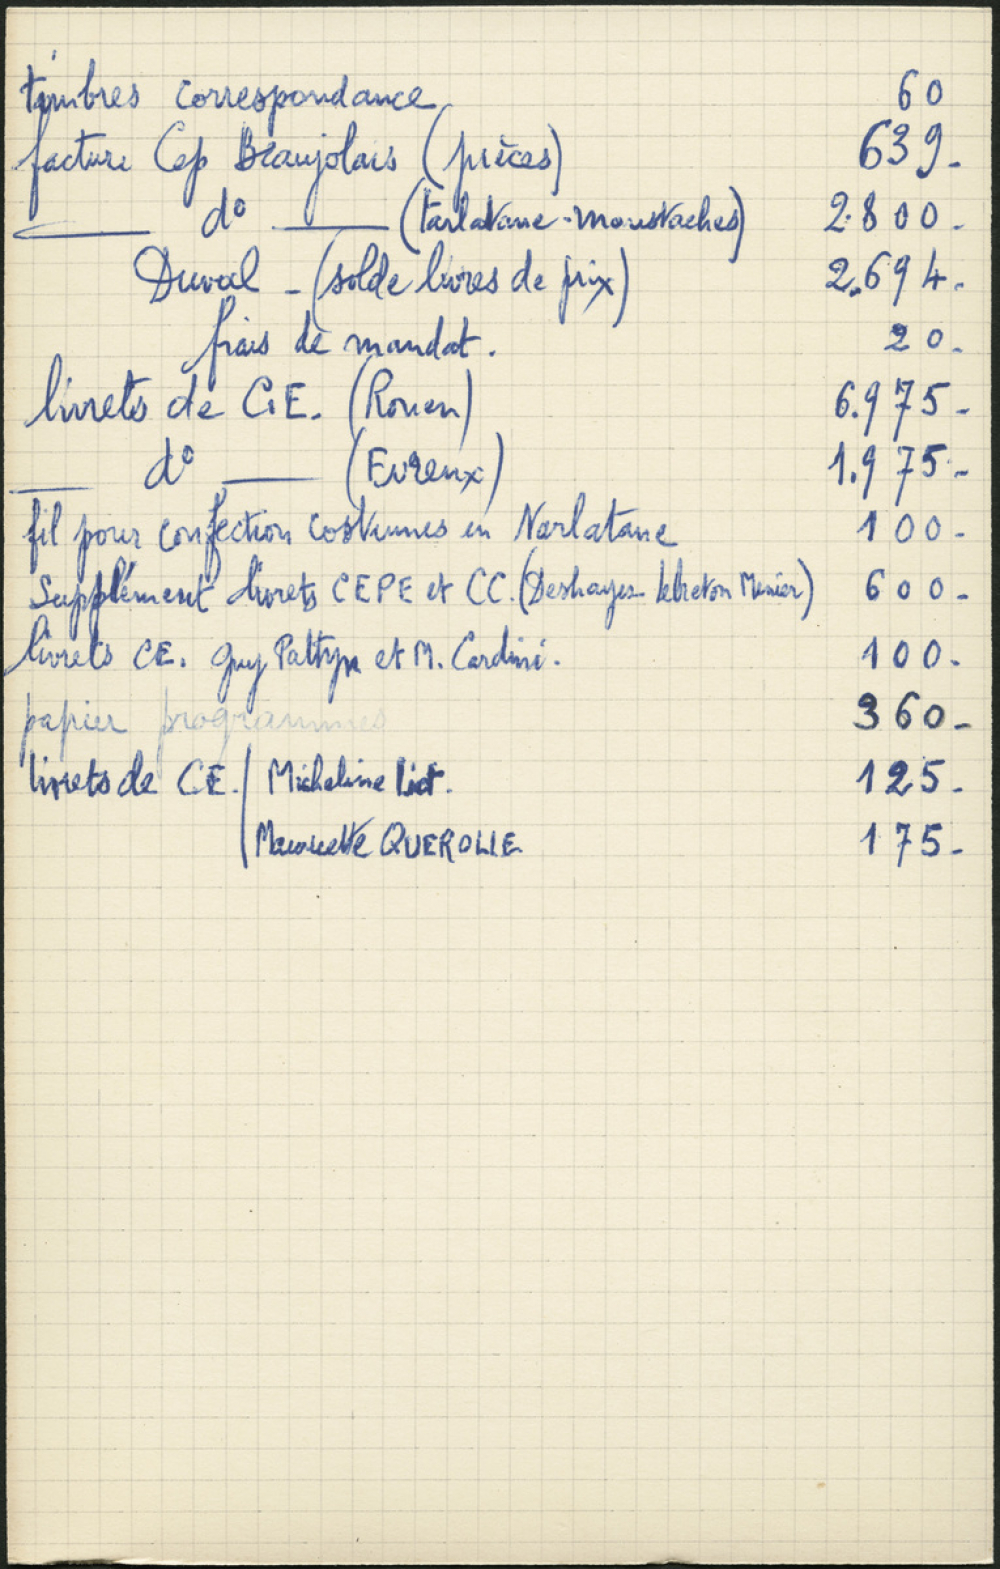 timbres correspondance 60
facture Cep Beaujolais (pièces) 639.
d° (tarlatane - moustaches) 2.800.
Duval - (solde livres de prix) 2.694.
frais de mandat. 20.
livrets de C.E. (Rouen) 6.975-
d° (Evreux) 1.975-
fil pour confection costumes en Narlatane 100-
Supplément livrets CEPE et CC. (Deshayes lebreton Menier) 600-
livrets CE. Guy Pattyn et M. Cardini. 100.
papier programmes 360-
livrets de CE. Micheline Liot. 125.
QUEROLLE 175-